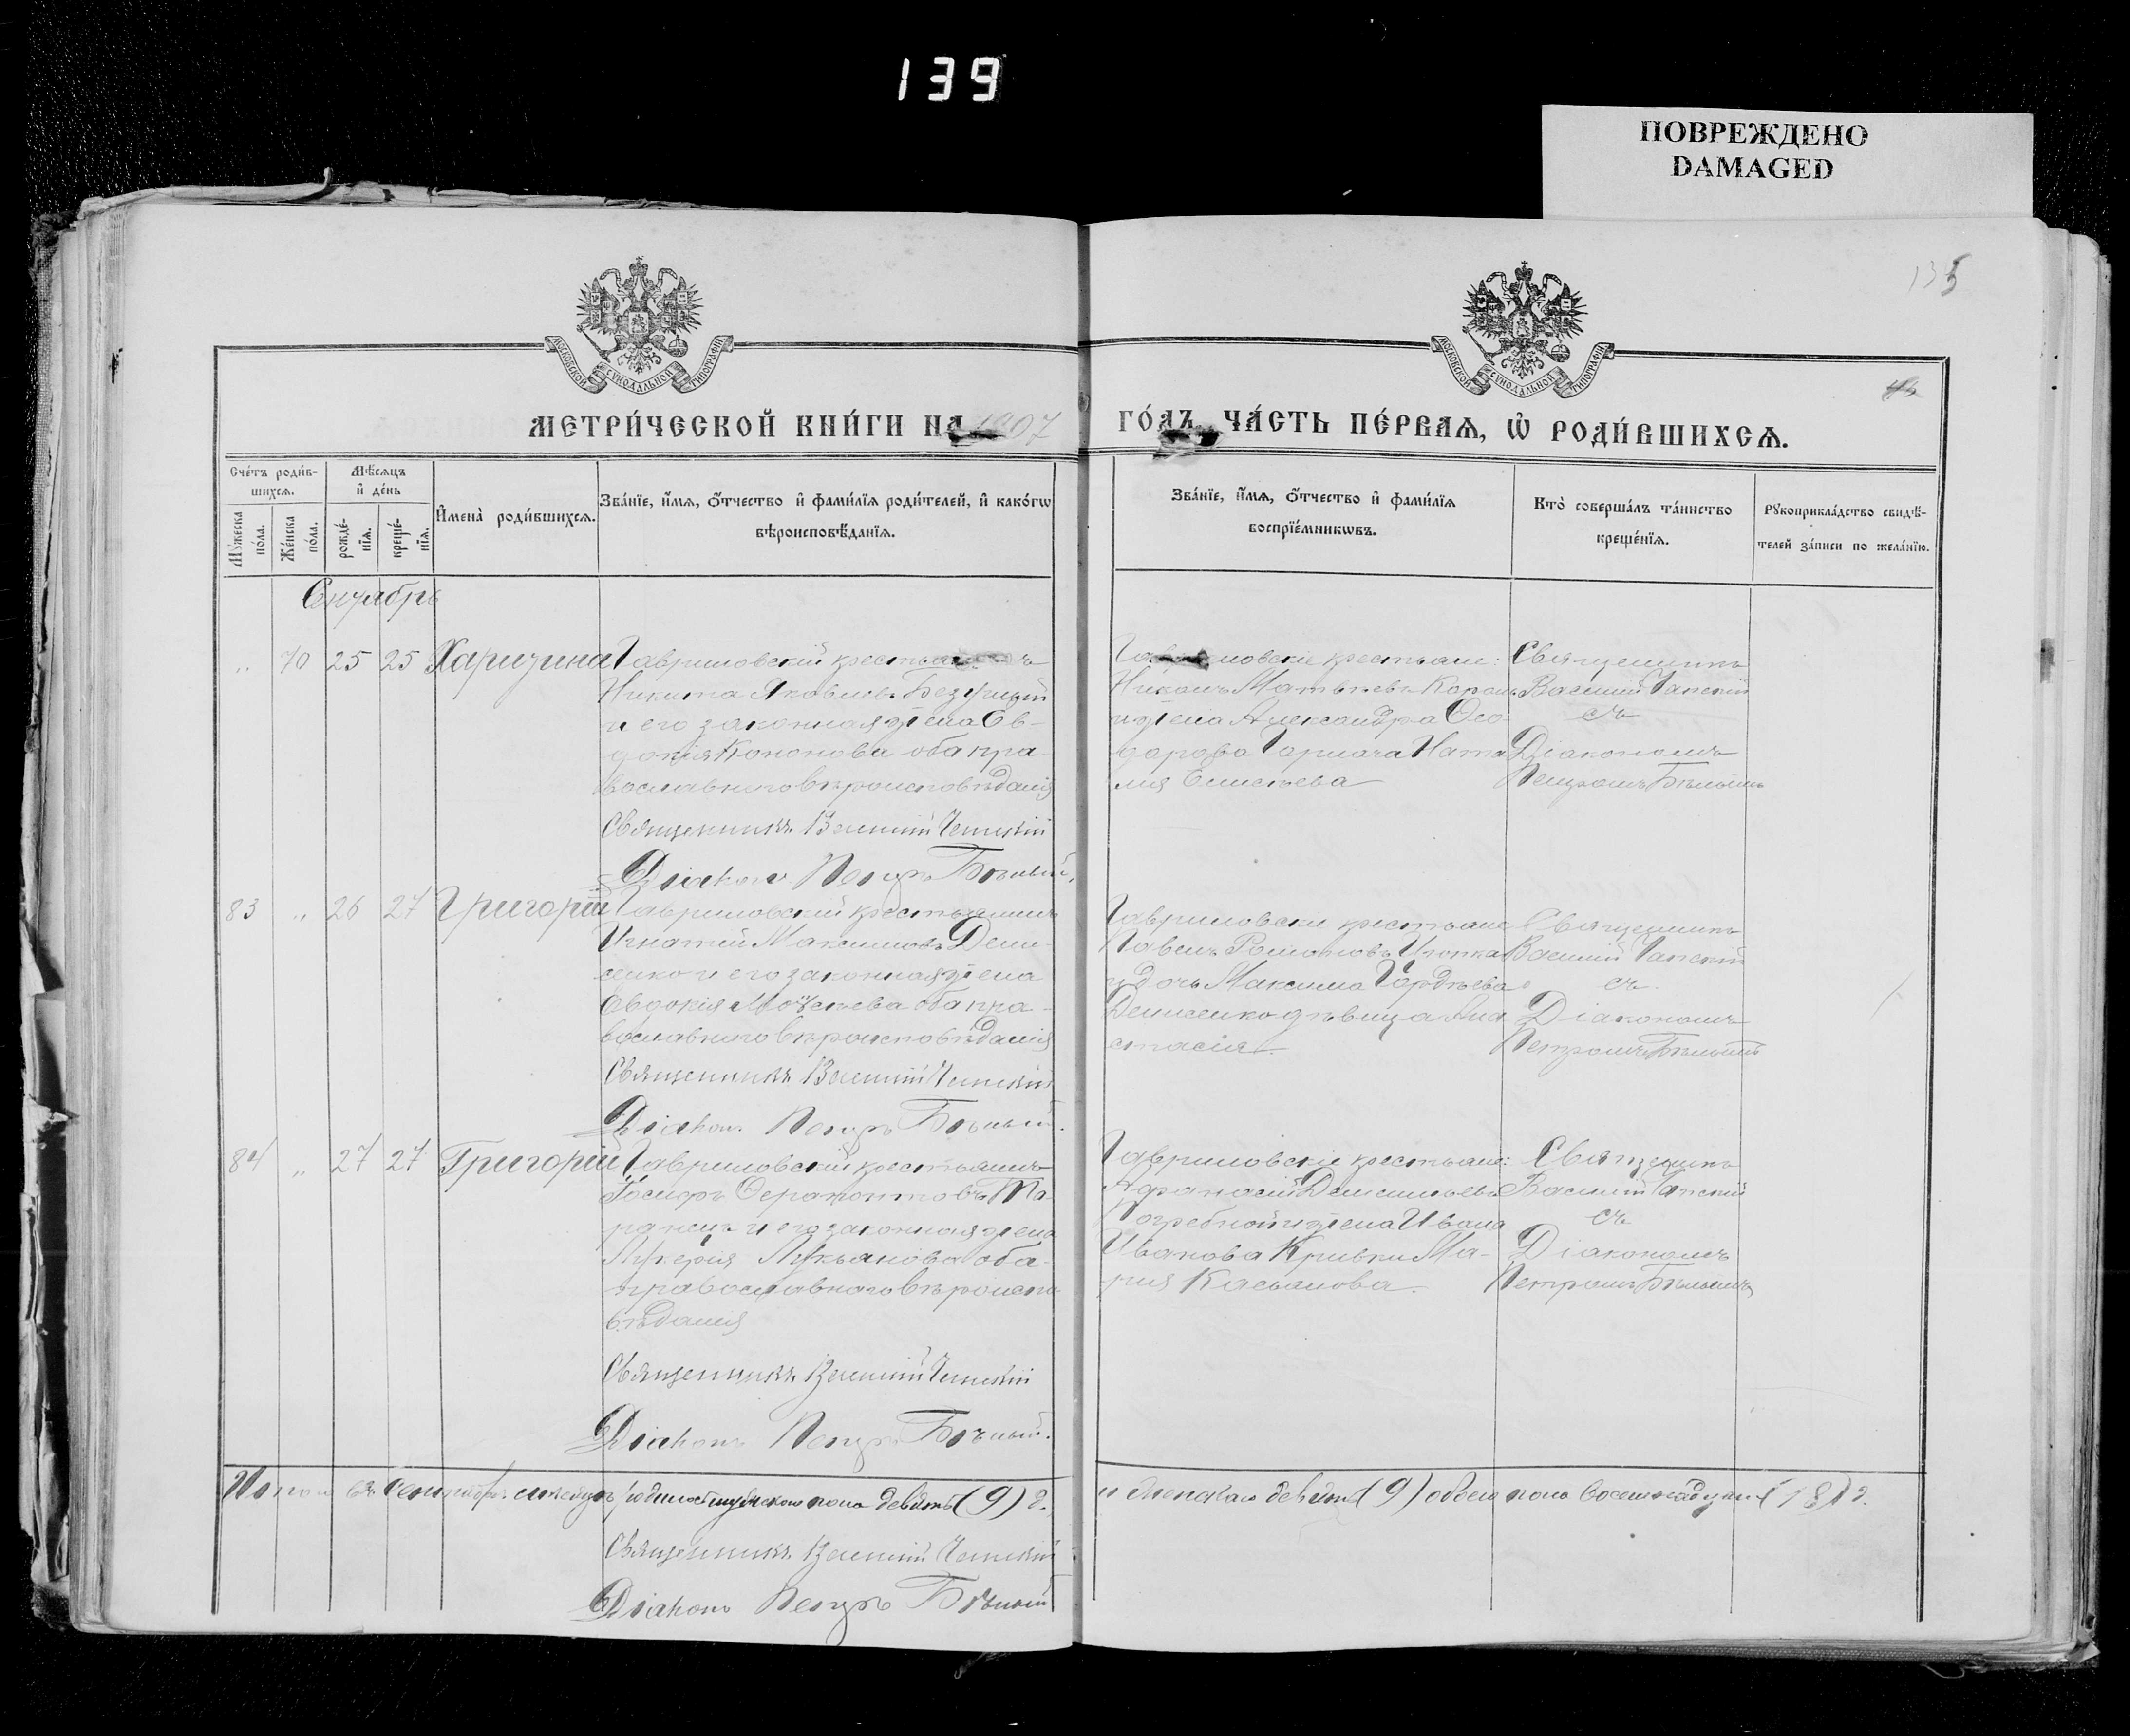 139
ПОВРЕЖДЕНО
DAMAGED
135
МОСКОВСКОЙ СѴНОДАЛЬНОЙ ТИПОГРАФІИ
МОСКОВСКОЙ СѴНОДАЛЬНОЙ ТИПОГРАФІИ
МЕТРИ́ЧЕСКОЙ КНИ́ГИ НА 1907 ГО́ДЪ, ЧА́СТЬ ПЕ́РВАѦ, Ѡ҆ РОДИ́ВШИХСѦ.
Сче́тъ роди́в-
шихсѧ.
Мѣ́сѧцъ
и҆ де́нь
Мꙋ́жеска
по́ла.
Же́нска
по́ла.
рожде́-
нїѧ.
креще́-
нїѧ.
И҆мена̀ роди́вшихсѧ.
Зва́нїе, и҆́мѧ, ѻ҆́тчество и҆ фами́лїѧ роди́телей, и҆ како́гѡ
вѣроисповѣ́данїѧ.
Зва́нїе, и҆́мѧ, ѻ҆́тчество и҆ фами́лїѧ
воспрїе́мникѡвъ.
Кто̀ соверша́лъ та́инство
креще́нїѧ.
Рꙋкоприкла́дство свидѣ́-
телей за́писи по жела́нїю.
Сентябрь
„ 70 25 25 Харитина
Гавриловскій
Никита Яковлевъ
и его законная жена Ев-
докія Кононова оба пра-
вославнаго вѣроисповѣданія
Священникъ Василій
Діаконъ Петръ Бѣлый.
Гавриловскіе крестьяне:
Никонъ Матвѣевъ Король
и жена Александра Ѳео-
дорова Наta-
лія Елисеева
Священникъ
Василій
съ
Діакономъ
Петромъ Бѣлымъ
83 „ 26 27 Григорій
Гавриловскій крестьянинъ
Игнатій Максимовъ Дени-
сенко и его законная жена
Евдокія Моѵсеева оба пра-
вославнаго вѣроисповѣданія
Священникъ Василій
Діаконъ Петръ Бѣлый.
Гавриловскіе крестьяне
Павелъ Романовъ
и дочь Максима Гордѣева
Денисенко дѣвица Ана-
стасія
Священникъ
Василій
съ
Діакономъ
Петромъ Бѣлымъ
84 „ 27 27 Григорій
Гавриловскій крестьянинъ
Іосифъ Ѳерапонтовъ Та-
ранецъ и его законная жена
Лукерія Лукьянова оба
православнаго вѣроиспо-
вѣданія
Священникъ Василій
Діаконъ Петръ Бѣлый.
Гавриловскіе крестьяне:
Афанасій
Погребной и жена Ивана
Иванова Кривки Ма-
рія Касьянова.
Священникъ
Василій
съ
Діакономъ
Петромъ Бѣлымъ
Итого въ Сентябрѣ мѣсяцѣ родилось мужескаго пола девять (9) д. и женскаго девять (9) обоего пола восемнадцать (18) д.
Священникъ Василій
Діаконъ Петръ Бѣлый